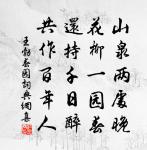 山泉兩處晚
花柳一園春
還持千日醉
共作百年人
王勃春園詞典網集